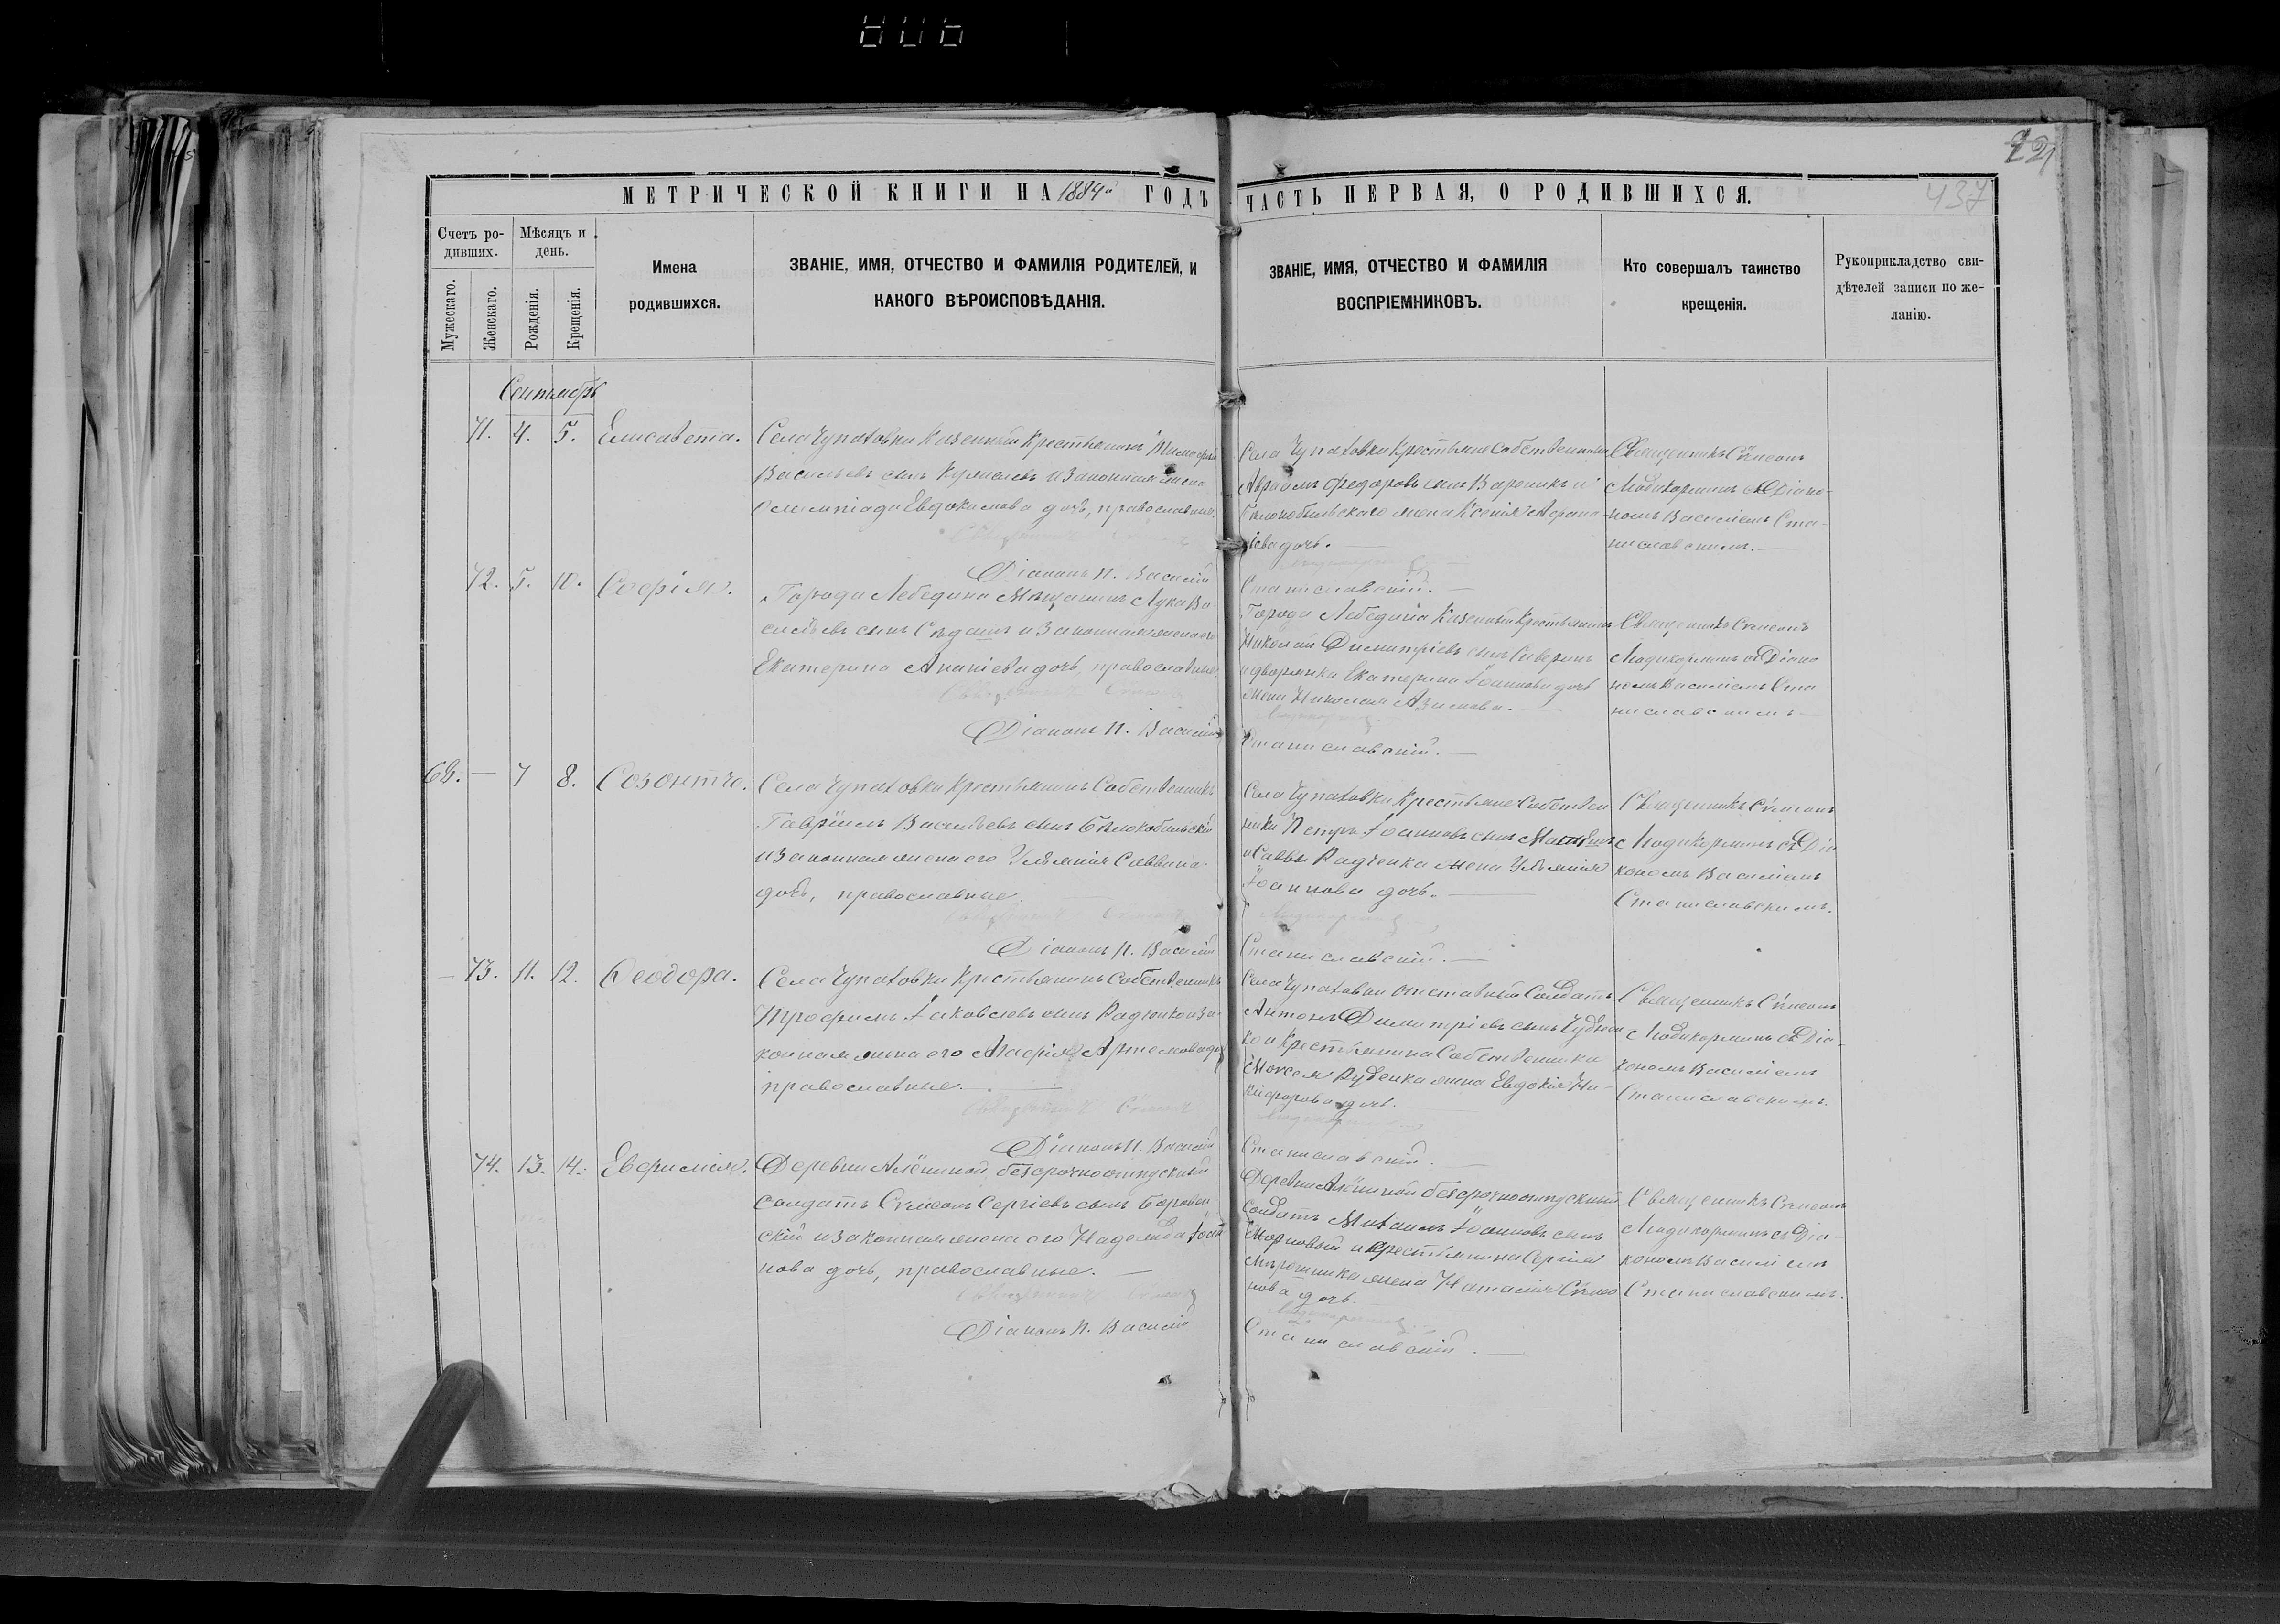 806
221
437
МЕТРИЧЕСКОЙ КНИГИ НА 1884й ГОДЪ
ЧАСТЬ ПЕРВАЯ, О РОДИВШИХСЯ.
Счетъ ро-
дивших.
Мужескаго.
Женскаго.
Мѣсяцъ и
день.
Рожденія.
Крещенія.
Имена
родившихся.
ЗВАНІЕ, ИМЯ, ОТЧЕСТВО И ФАМИЛІЯ РОДИТЕЛЕЙ, И
КАКОГО ВѢРОИСПОВѢДАНІЯ.
ЗВАНІЕ, ИМЯ, ОТЧЕСТВО И ФАМИЛІЯ
ВОСПРІЕМНИКОВЪ.
Кто совершалъ таинство
крещенія.
Рукоприкладство сви-
дѣтелей записи по же-
ланію.
Сентябрь
71. 4. 5. Елисавета.
Села Чупаховки Казенный Крестьянинъ
Васильевъ сынъ и законная жена
Олимпіада Евдокимова дочь, православные.
Діаконъ И. Василій
Села Чупаховки Крестьяне Собственники
Авраамъ Федоровъ сынъ Вареникъ и
Бѣлокобыльскаго жена Ксенія Афана-
сіева дочь.
Станиславскій.
Священникъ Симеонъ
съ Діако-
номъ Василіемъ Ста-
ниславскимъ.
72. 5. 10. Софія.
Города Лебедина Мѣщанинъ Лука Ва-
сильевъ сынъ и законная жена его
Екатерина Ананіева дочь, православные.
Діаконъ И. Василій
Города Лебедина Казенный Крестьянинъ
Николай Димитріевъ сынъ
и дворянка Екатерина Іоаннова дочь
жена Николая Азимова.
Станиславскій.
Священникъ Симеонъ
съ Діако
номъ Василіемъ Ста
ниславскимъ
68. — 7 8. Созонтъ.
Села Чупаховки Крестьянинъ Собственникъ
Гавріилъ Васильевъ сынъ Бѣлокобыльскій
и законная жена его Ульянія Саввина
дочь, православные.
Діаконъ И. Василій
Села Чупаховки Крестьяне Собствен
ники Петръ Іоанновъ сынъ
и Саввы Радченка жена Ульянія
Іоаннова дочь.
Станиславскій.
Священникъ Симеонъ
съ Діа
кономъ Василіемъ
Станиславскимъ.
73. 11. 12. Ѳеодора.
Села Чупаховки Крестьянинъ Собственникъ
Трофимъ Іаковлевъ сынъ Радченко и за-
конная жена его Марія Артемова дочь
православные.
Діаконъ И. Василій
Села Чупаховки отставный Солдатъ
Антоній Димитріевъ сынъ
ко и Крестьянина Собственника
Моисея Руденка жена Евдокія Ни-
кифорова дочь.
Станиславскій.
Священникъ Симеонъ
съ Діа-
кономъ Василіемъ
Станиславскимъ.
74. 13. 14. Евфимія.
Деревни Алёшиной безсрочноотпускный
солдатъ Симеонъ Сергіевъ сынъ Боровен
скій и законная жена его Надежда Іоан
нова дочь, православные.
Діаконъ И. Василій
Деревни Алёшиной безсрочноотпускный
Солдатъ Михаилъ Іоанновъ сынъ
и Крестьянина Сергія
Мирошника жена Наталія Симо
нова дочь.
Станиславскій.
Священникъ Симеонъ
съ Діа-
кономъ Василіемъ
Станиславскимъ.